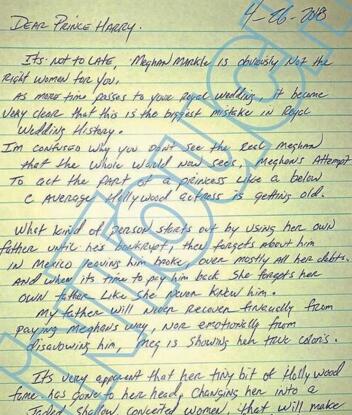 4-26-2018
DEAR PRINCE HARRY.
ITS NOT TO LATE, MEGHAN MARKLE IS OBVIOUSLY NOT THE
RIGHT WOMEN FOR YOU.
AS MORE TIME PASSES TO YOUR ROYAL WEDDING, IT BECAME
VERY CLEAR THAT THIS IS THE BIGGEST MISTAKE IN ROYAL
WEDDING HISTORY.
IM CONFUSED WHY YOU DON'T SEE THE REAL MEGHAN
THAT THE WHOLE WORLD NOW SEES. MEGHAN'S ATTEMPT
TO ACT THE PART OF A PRINCESS LIKE A BELOW
C AVERAGE HOLLYWOOD ACTRESS IS GETTING OLD.
WHAT KIND OF PERSON STARTS OUT BY USING HER OWN
FATHER UNTIL HE'S BANKRUPT, THEN FORGETS ABOUT HIM
IN MEXICO LEAVING HIM BROKE, OVER MOSTLY ALL HER DEBTS.
AND WHEN ITS TIME TO PAY HIM BACK SHE FORGETS HER
OWN FATHER LIKE SHE NEVER KNEW HIM.
MY FATHER WILL NEVER RECOVER FINACIALLY FROM
PAYING MEGHAN'S WAY, NOR EMOTIONALLY FROM
DISAVOWING HIM. MEG IS SHOWING HER TRUE COLORS.
IT'S VERY APPARENT THAT HER TINY BIT OF HOLLYWOOD
FAME HAS GONE TO HER HEAD, CHANGING HER INTO A
JADED, SHALLOW, CONCEITED WOMEN, THAT WILL MAKE